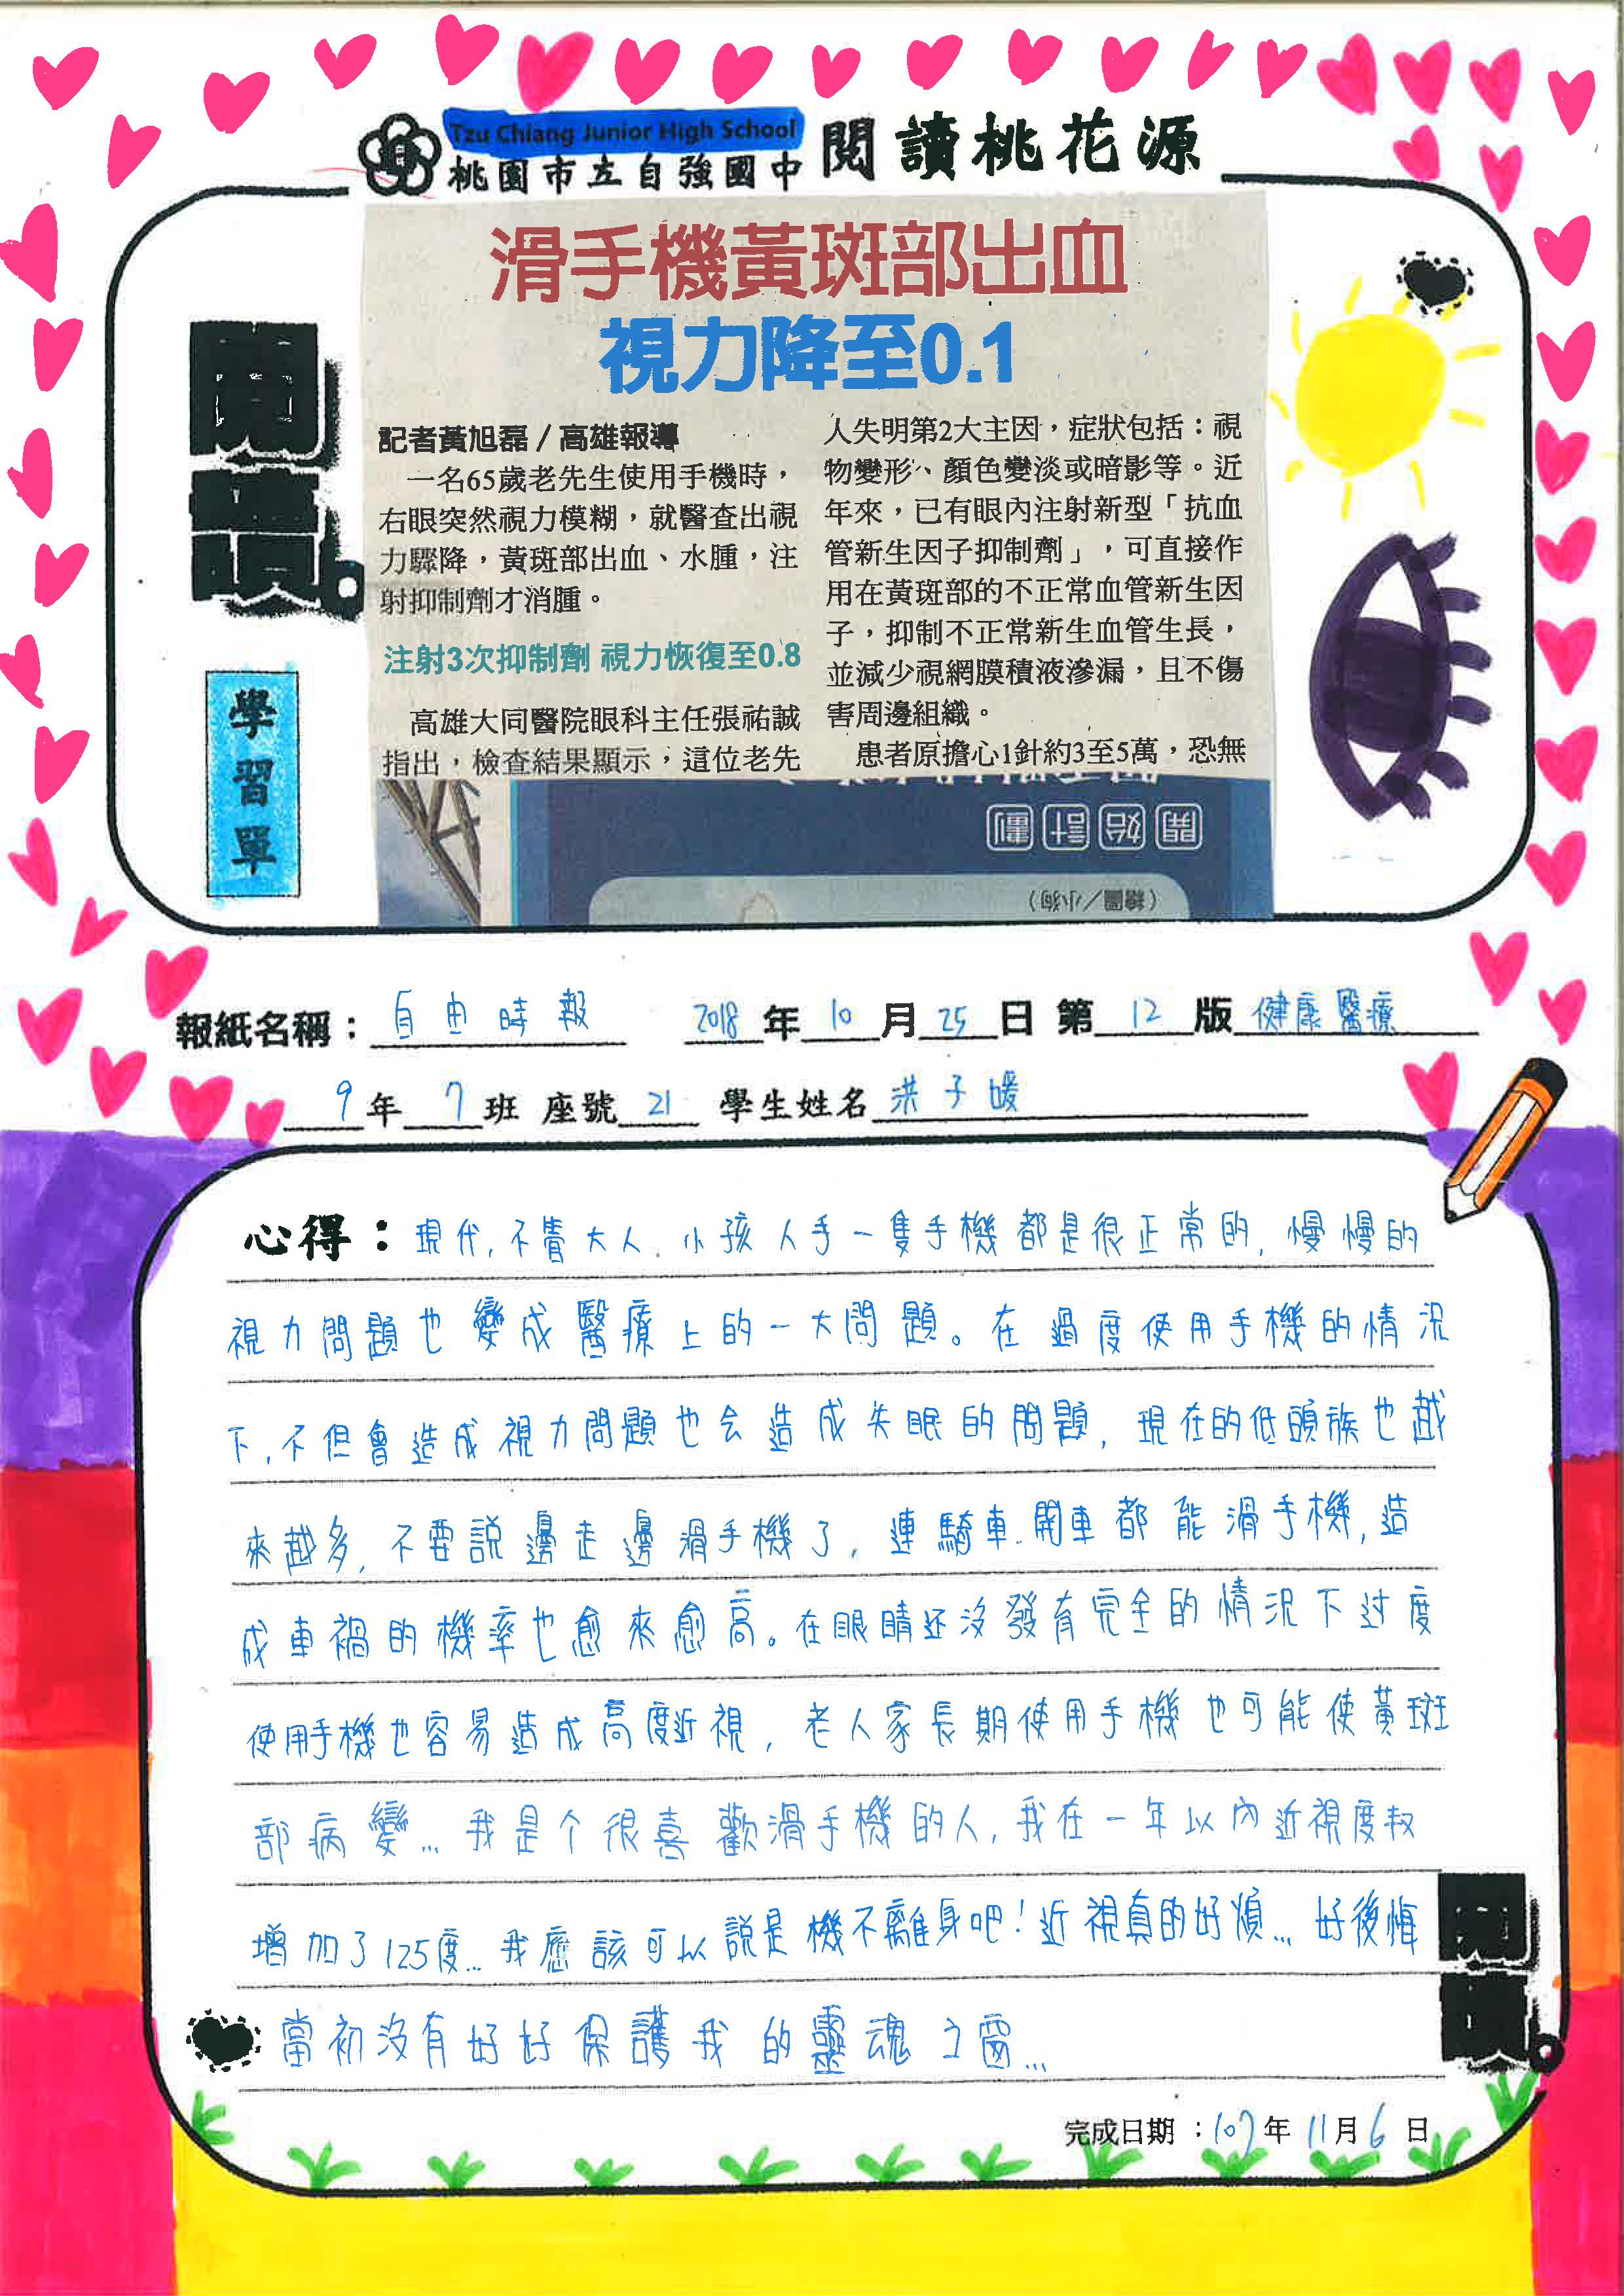 Tzu Chiang Junior High School
桃園市立自強國中
閱讀桃花源
閱讀。
學習單
滑手機黃斑部出血
視力降至0.1
記者黃旭磊／高雄報導
一名65歲老先生使用手機時，
右眼突然視力模糊，就醫查出視
力驟降，黃斑部出血、水腫，注
射抑制劑才消腫。
注射3次抑制劑 視力恢復至0.8
高雄大同醫院眼科主任張祐誠
指出，檢查結果顯示，這位老先
人失明第2大主因，症狀包括：視
物變形、顏色變淡或暗影等。近
年來，已有眼內注射新型「抗血
管新生因子抑制劑」，可直接作
用在黃斑部的不正常血管新生因
子，抑制不正常新生血管生長，
並減少視網膜積液滲漏，且不傷
害周邊組織。
患者原擔心1針約3至5萬，恐無
開始計劃
（繪圖／小狗）
報紙名稱：自由時報 2018年10月25日第12版 健康醫療
9年7班 座號21 學生姓名 洪子媛
心得：現代,不管大人、小孩人手一隻手機都是很正常的,慢慢的
視力問題也變成醫療上的一大問題。在過度使用手機的情況
下,不但會造成視力問題也会造成失眠的問題,現在的低頭族也越
來越多,不要說邊走邊滑手機了,連騎車、開車都能滑手機,造
成車禍的機率也愈來愈高。在眼睛还沒發有完全的情況下过度
使用手機也容易造成高度近視,老人家長期使用手機也可能使黃斑
部病變…我是个很喜歡滑手機的人,我在一年以內近視度
增加了125度…我應該可以說是機不離身吧!近視真的好煩…好後悔
當初沒有好好保護我的靈魂之窗…
閱讀。
完成日期：107年11月6日